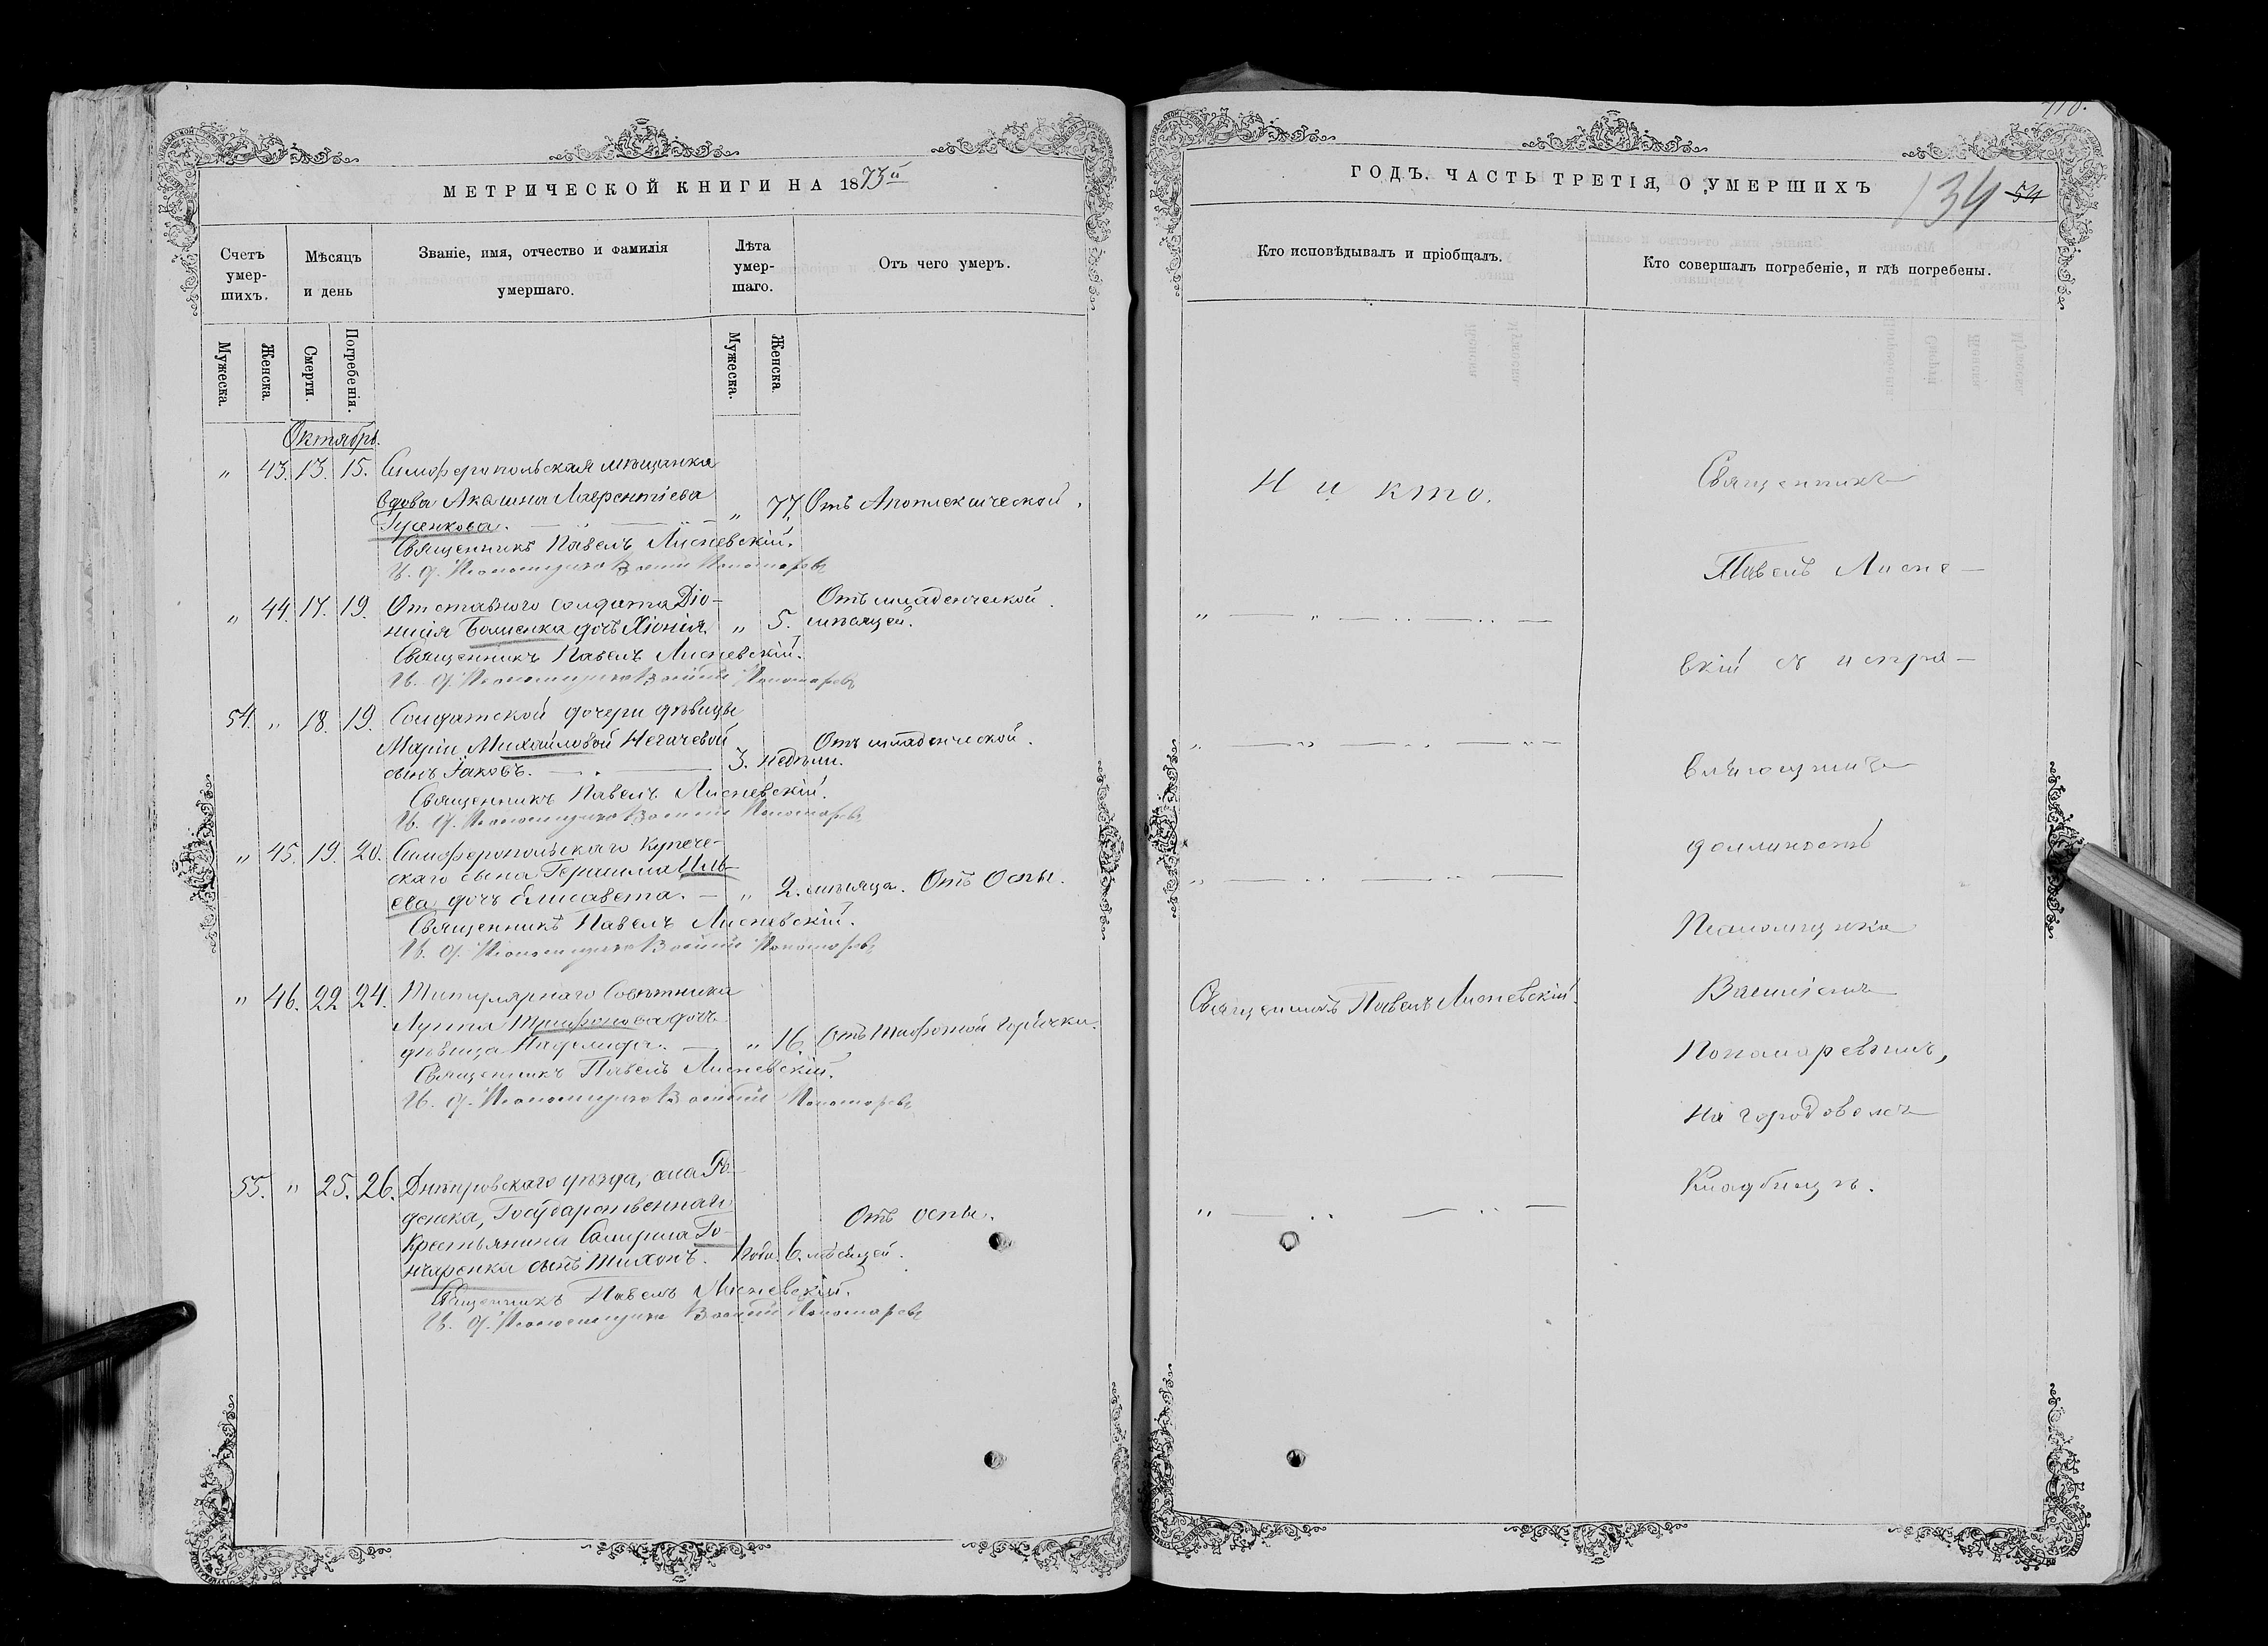 МЕТРИЧЕСКОЙ КНИГИ НА 1873й
Счетъ умер-шихъ.
Мѣсяцъ и день
Званіе, имя, отчество и фамилія умершаго.
Лѣта умер-шаго.
Отъ чего умеръ.
Мужеска.
Женска.
Смерти.
Погребенія.
Мужеска.
Женска
Октябрь.
" 43. 13. 15. Симферопольская мѣщанка
вдова Акилина Лаврентіева
Гусенкова. " 77. Отъ Апоплексической.
Священникъ Павелъ Лисневскій.
И. д. Псаломщика Василій Пономаревъ
" 44. 17. 19. Отставного солдата Діо-
нисія дочь Хіонія. " 5. мѣсяцей. Отъ младенческой.
Священникъ Павелъ Лисневскій.
И. д. Псаломщика Василій Пономаревъ
54. " 18. 19. Солдатской дочери дѣвицы
Маріи Михайловой Негачевой
сынъ Іаковъ. 3. недѣли. Отъ младенческой.
Священникъ Павелъ Лисневскій.
И. д. Псаломщика Василій Пономаревъ
" 45. 19. 20. Симферопольскаго купече-
скаго сына Герасима Иль-
ева дочь Елисавета. " 2. мѣсяца. Отъ Оспы.
Священникъ Павелъ Лисневскій.
И. д. Псаломщика Василій Пономаревъ
" 46. 22 24. Титулярнаго Совѣтника
Луппа Трифонова дочь
дѣвица " 16. Отъ Тифозной горячки.
Священникъ Павелъ Лисневскій.
И. д. Псаломщика Василій Пономаревъ
55. " 25. 26. Днѣпровскаго уѣзда, села
Государственнаго
Крестьянина Го-
нчаренка сынъ Тихонъ. 1 годъ. 6. мѣсяцей. Отъ оспы.
Священникъ Павелъ Лисневскій.
И. д. Псаломщика Василій Пономаревъ
ГОДЪ. ЧАСТЬ ТРЕТІЯ, О УМЕРШИХЪ
134 54
Кто исповѣдывалъ и пріобщалъ.
Кто совершалъ погребеніе, и гдѣ погребены.
Никто.
Священникъ Павелъ Лисневскій.
Священникъ
Павелъ Лисне-
вскій съ испра-
вляющимъ
должность
Псаломщика
Василіемъ
Пономаревымъ,
на городовомъ
Кладбищѣ.